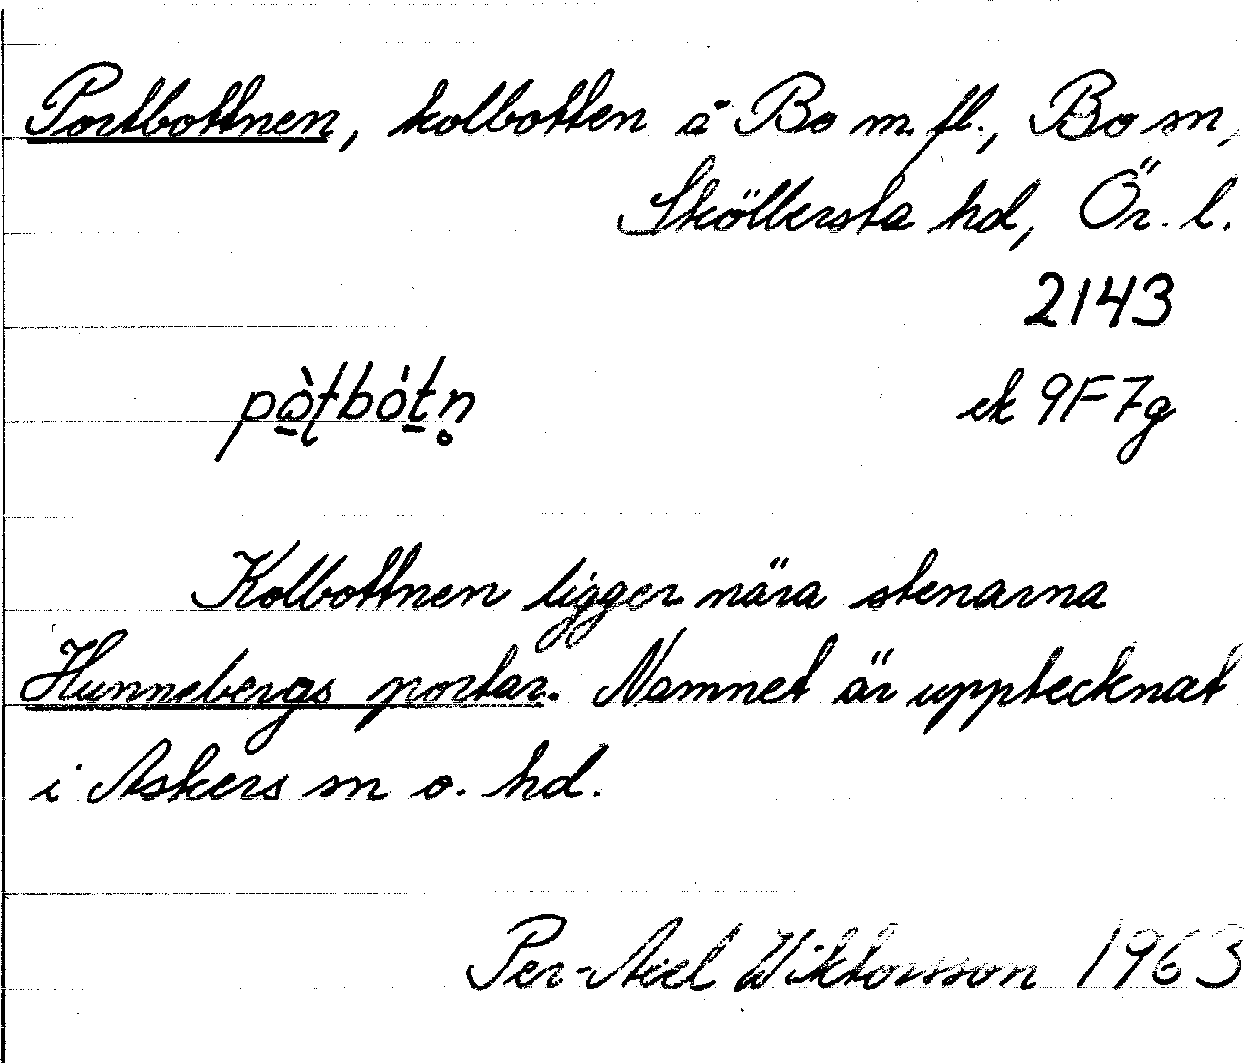 Portbottnen, kolbotten å Bo m. fl., Bo sn,
Sköllersta hd, Ör. l.
2143
pòʈbót̠n̥
ek 9F7g
Kolbottnen ligger nära stenarna
Hunnebergs portar. Namnet är upptecknat
i Askers sn o. hd.
Per-Axel Wiktorsson 1963